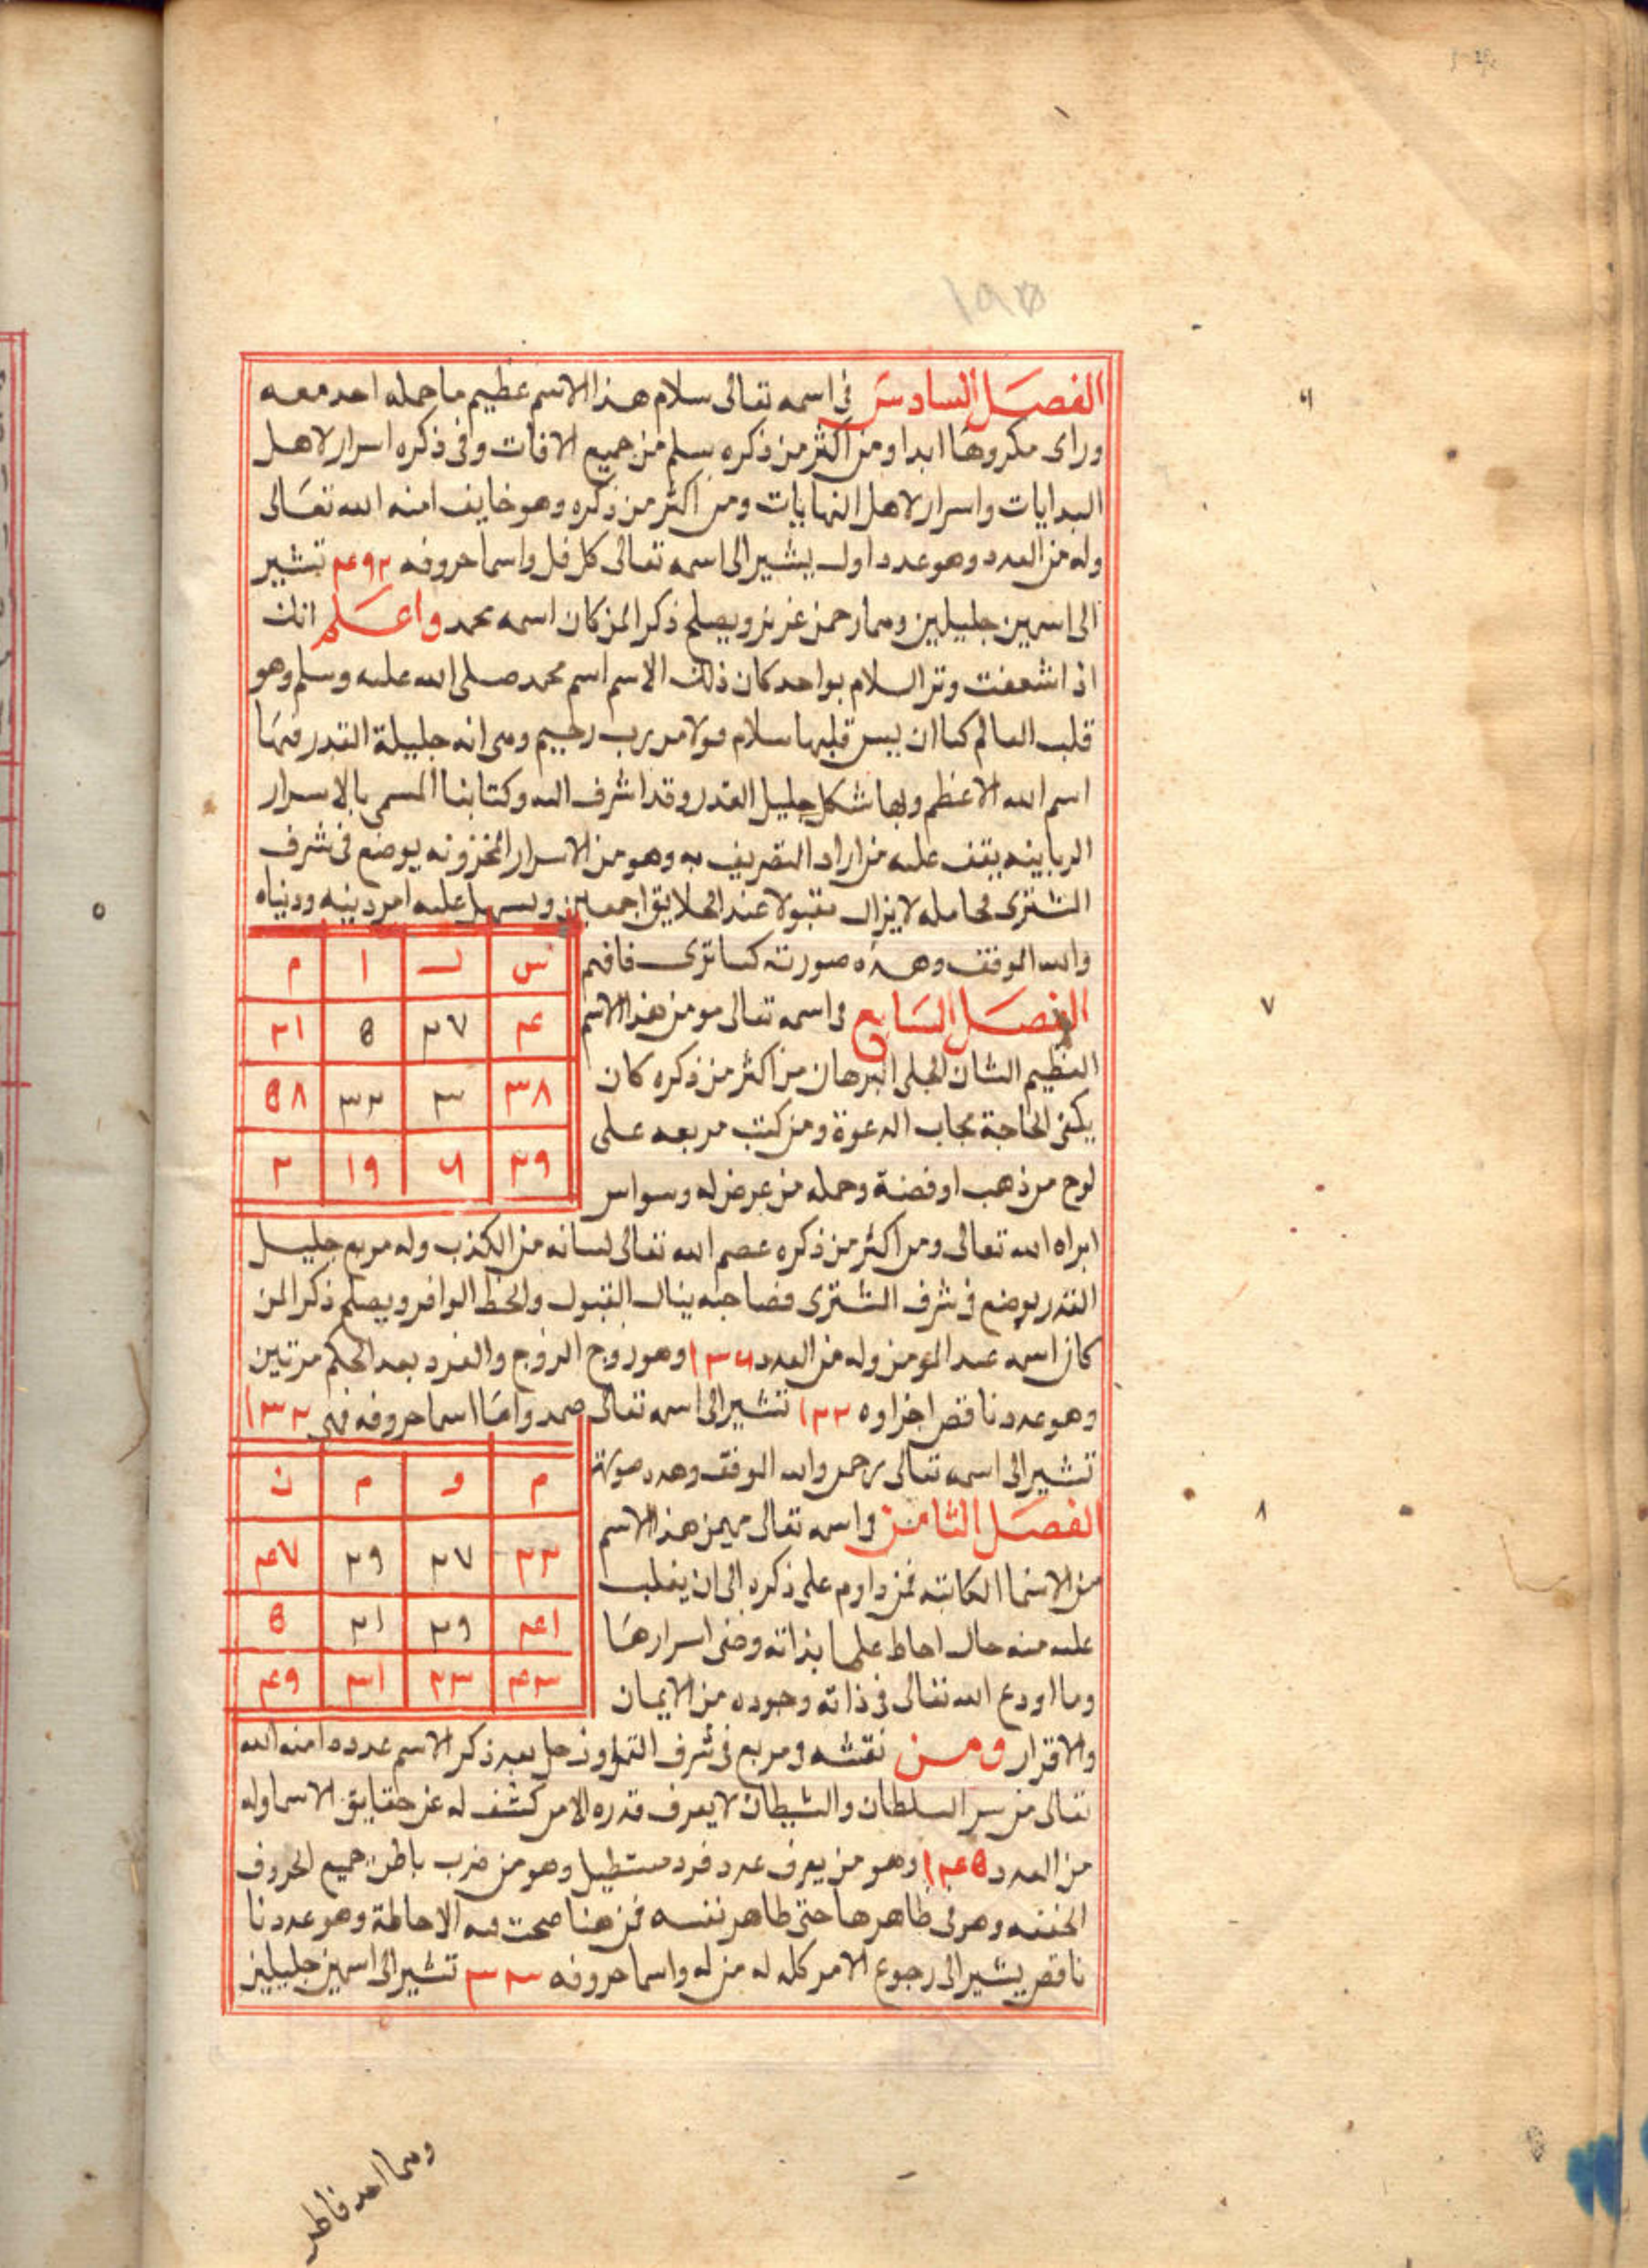 ١٩٥
الفصل السادس في اسمه تعالى سلام هذا الاسم عظيم ما حمله احد معه
وراى مكروها ابدا ومن اكثر من ذكره سلم من جميع الافات وفي ذكره اسرار لاهل
البدايات واسرار لاهل النهايات ومن اكثر من ذكره وهو خايف امنه الله تعالى
وله من العدد وهو عدد اول يشير الى اسمه تعالى كل فل واسما حروفه ٤٩٢ تشير
الى اسمين جليلين وهما رحمن عزيز ويصلح ذكرا لمن كان اسمه محمد واعلم انك
اذا شفعت وتر السلام بواحد كان ذلك الاسم اسم محمد صلى الله عليه وسلم وهو
قلب العالم كما ان يس قلبها سلام قولا من رب رحيم وهي انه جليلة القدر فيها
اسم الله الاعظم ولها شكل جليل القدر وقد اشرف اليه وكتابنا المسمى بالاسرار
الربانيه يقف عليه من اراد التصريف به وهو من الاسرار المخزونه يوضع في شرف
المشترى فحامله لا يزال مقبولا عند الخلايق اجمعين ويسهل عليه امر دينه ودنياه
والله الموفق وهذه صورته كما ترى فافهم
س ل ا م
٤ ٢٧ 8 ٢١
٣٨ ٣ ٣٢ 8٨
٢٩ ٦ ١٩ ٢
الفصل السابع في اسمه تعالى مومن هذا الاسم
العظيم الشان الجلى البرهان من اكثر من ذكره كان
يكفى الحاجة مجاب الدعوة ومن كتب مربعه على
لوح من ذهب او فضة وحمله من عرض له وسواس
ابراه الله تعالى ومن اكثر من ذكره عصم الله تعالى لسانه من الكذب وله مربع جليل
القدر يوضع في شرف المشترى فصاحبه ينال القبول والحظ الوافر ويصلح ذكرا لمن
كان اسمه عبد المومن وله من العدد ١٣٦ وهو زوج الزوج والفرد بعد الحكم مرتين
وهو عدد ناقص اجزاوه ١٣٢ تشير الى اسمه تعالى صمد واما اسما حروفه فهى ١٣٢
تشير الى اسمه تعالى رحمن والله الموفق وهذه صورته
م و م ن
٢٣ ٢٧ ٢٩ ٤٧
٤١ ٢٩ ٢١ 8
٤٣ ٢٣ ٣١ ٤٩
الفصل الثامن في اسمه تعالى مهيمن هذا الاسم
من الاسما الكاتبه فمن داوم على ذكره الى ان يغلب
عليه منه حال احاط علما بذاته وخفى اسرارها
وما اودع الله تعالى في ذاته وجوده من الايمان
والاقرار ومن نقشه في مربع في شرف القمر او زحل بعد ذكر الاسم عدده امنه الله
تعالى من سر السلطان والشيطان لا يعرف قدره الامر كشف له عن حقايق الاسما وله
من العدد ١٤8 وهو من يعرف عدد فرد مستطيل وهو من ضرب باطن جميع الحروف
الخفيه وهو في ظاهرها حتى ظاهر نفسه فمن هنا صحت فيه الاحاطة وهو عدد نا
ناقص يشير الى رجوع الامر كله له من له واسما حروفه ٣٠٣ تشير الى اسمين جليلين
وهما احد فاطر
٦
٧
٨